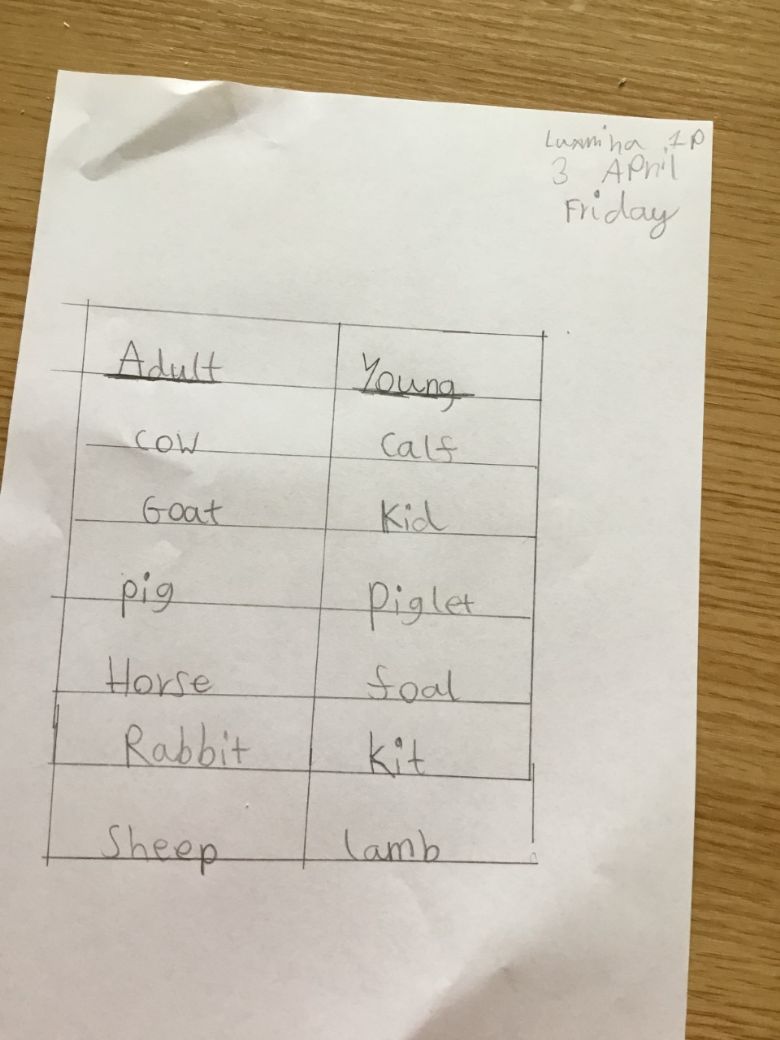 Luxmiha 1P
3 April
Friday
Adult Young
cow Calf
Goat Kid
pig Piglet
Horse foal
Rabbit kit
Sheep lamb